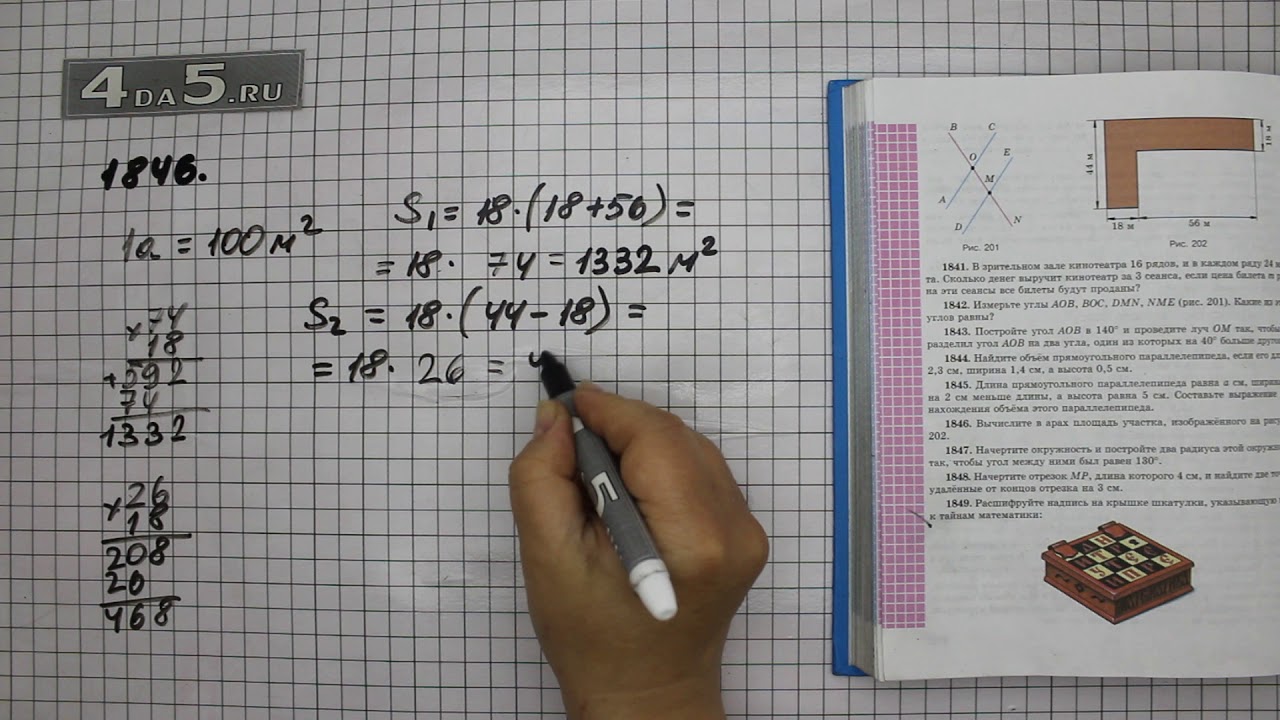 4DA5.RU
1846.
1а = 100 м²
S₁ = 18·(18+56) =
= 18· 74 = 1332 м²
S₂ = 18·(44−18) =
= 18· 26 = 4
× 74
18
+ 592
74
1332
× 26
18
208
26
468
5
B C
O E
M
A
D N
Рис. 201
44 м
18 м
18 м 56 м
Рис. 202
1841. В зрительном зале кинотеатра 16 рядов, и в каждом ряду 24
та. Сколько денег выручит кинотеатр за 3 сеанса, если цена билета
на эти сеансы все билеты будут проданы?
1842. Измерьте углы AOB, BOC, DMN, NME (рис. 201). Какие из
углов равны?
1843. Постройте угол AOB в 140° и проведите луч OM так, чтобы
разделил угол AOB на два угла, один из которых на 40° больше
1844. Найдите объём прямоугольного параллелепипеда, если его
2,3 см, ширина 1,4 см, а высота 0,5 см.
1845. Длина прямоугольного параллелепипеда равна a см,
на 2 см меньше длины, а высота равна 5 см. Составьте выражение
нахождения объёма этого параллелепипеда.
1846. Вычислите в арах площадь участка, изображённого на
202.
1847. Начертите окружность и постройте два радиуса этой
так, чтобы угол между ними был равен 130°.
1848. Начертите отрезок MP, длина которого 4 см, и найдите две
удалённые от концов отрезка на 3 см.
1849. Расшифруйте надпись на крышке шкатулки,
к тайнам математики: